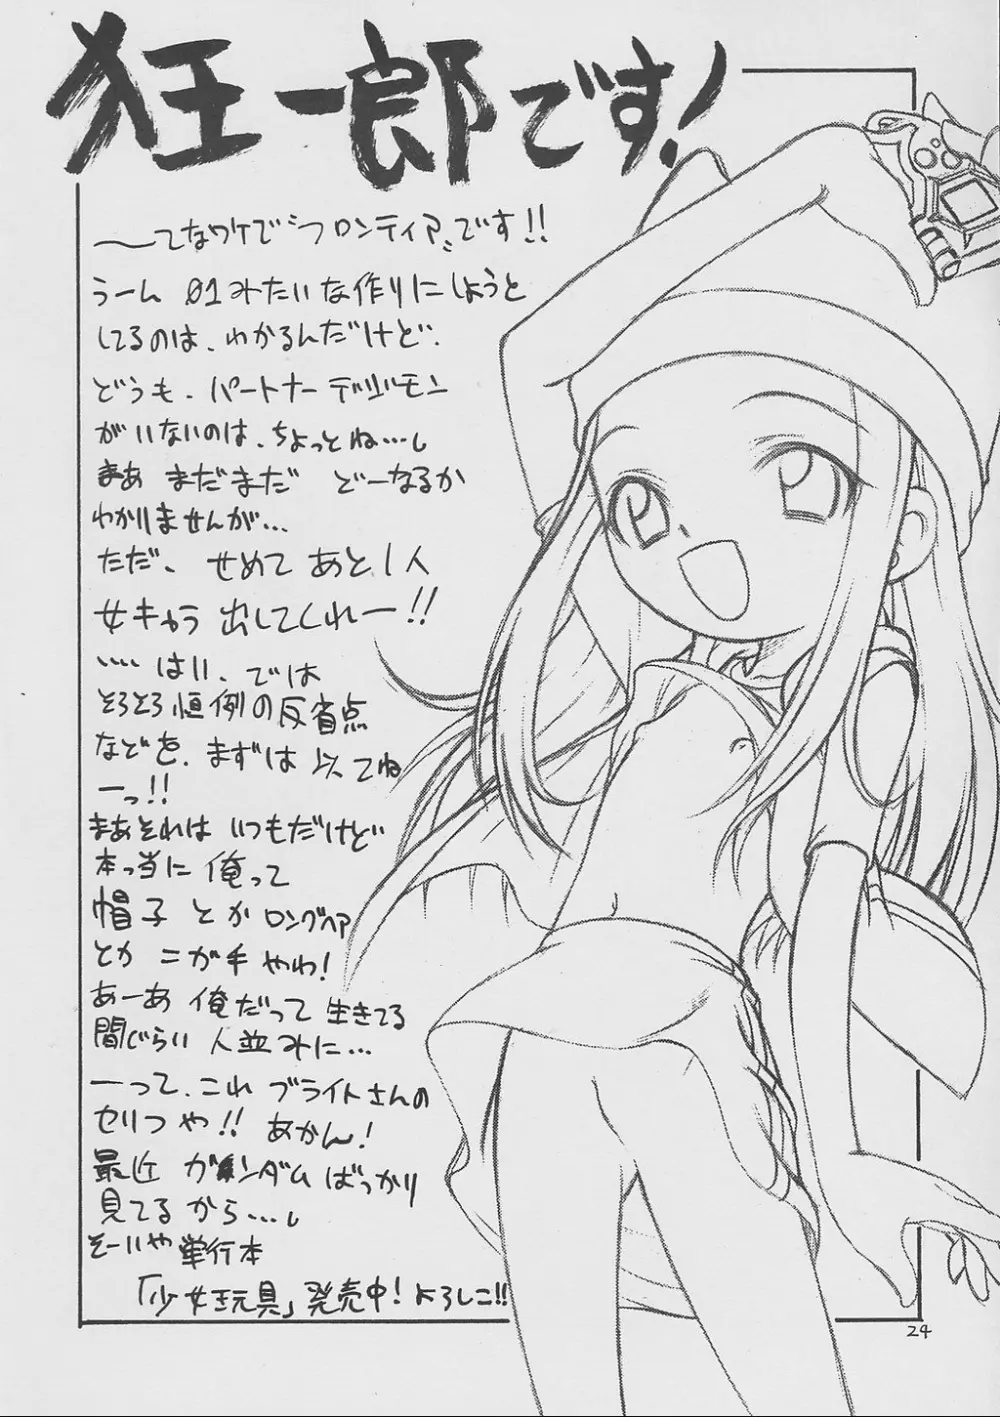 狂一郎です!
～てなワケで"フロンティア"です!!
うーん 01みたいな作りにしようと
してるのは、わかるんだけど、
どうも、パートナーデジモン
がいないのは、ちょっとね…。
まあ まだまだ どーなるか
わかりませんが…
ただ、せめて あと1人
女キャラ出してくれー!!
…… はい、では
そろそろ恒例の反省点
などを、まずは 以てね
ーっ!!
まあそれは いつもだけど
本っ当に 俺って
帽子 とか ロングヘア
とか ニガ手 やわ!
あーあ 俺だって 生きてる
間じらい 人並みに…
ーって、これ ブライトさんの
セリフや!! あかん!
最近 ガンダム ばっかり
見てるから…。
そーいや 単行本
「少女玩具」発売中! よろしこ!!
24